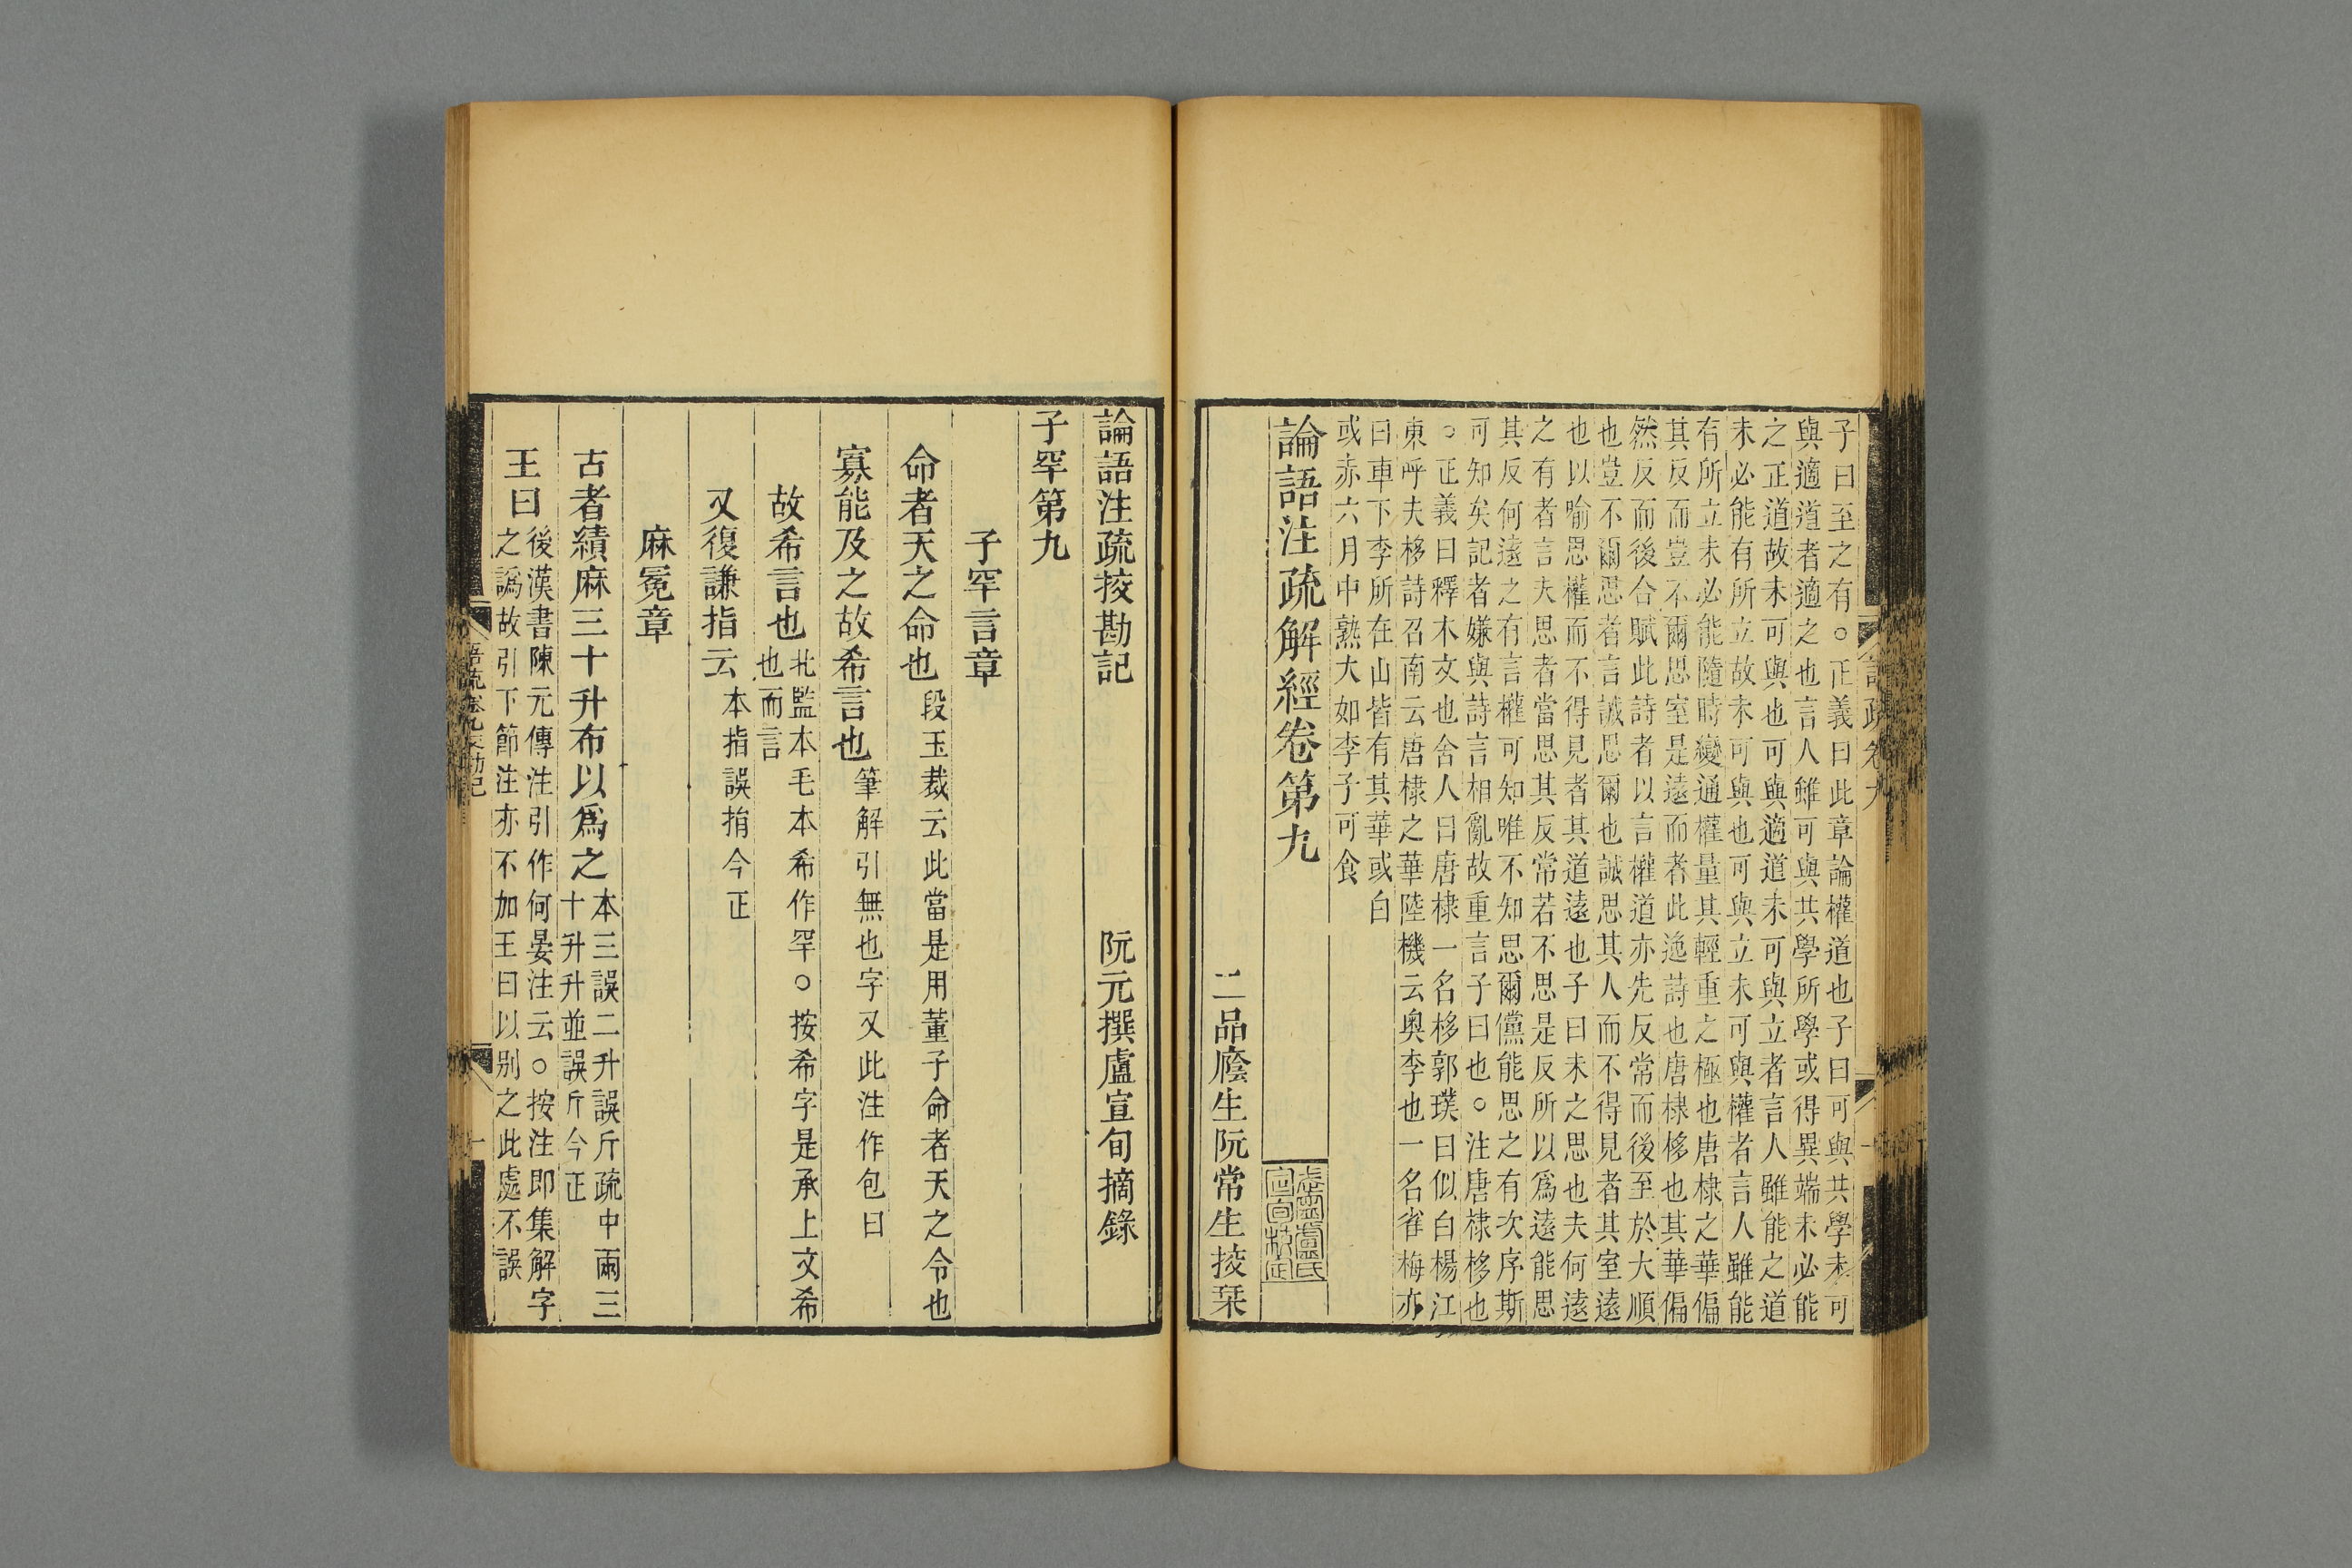 子曰至之有○正義曰此章論權道也子曰可與共學未可
與適道者適之也言人雖可與共學所學或得異端未必能
之正道故未可與也可與適道未可與立者言人雖能之道
未必能有所立故未可與也可與立未可與權者言人雖能
有所立未必能隨時變通權量其輕重之極也唐棣之華偏
其反而豈不爾思室是遠而者此逸詩也唐棣栘也其華偏
然反而後合賦此詩者以言權道亦先反常而後至於大順
也豈不爾思者言誠思爾也誠思其人而不得見者其室遠
也以喻思權而不得見者其道遠也子曰未之思也夫何遠
之有者言夫思者當思其反常若不思是反所以爲遠能思
其反何遠之有言權可知唯不知思爾儻能思之有次序斯
可知矣記者嫌與詩言相亂故重言子曰也○注唐棣栘也
○正義曰釋木文也舍人曰唐棣一名栘郭璞曰似白楊江
東呼夫栘詩召南云唐棣之華陸機云奥李也一名雀梅亦
曰車下李所在山皆有其華或白
或赤六月中熟大如李子可食
論語注疏解經卷第九
二品廕生阮常生挍栞
論語注疏挍勘記
阮元撰盧宣旬摘錄
子罕第九
子罕言章
命者天之命也 段玉裁云此當是用董子命者天之令也
寡能及之故希言也 筆解引無也字又此注作包曰
故希言也 北監本毛本希作罕○按希字是承上文希
也而言
又復謙指云 本指誤揹今正
麻冕章
古者績麻三十升布以爲之 本三誤二升誤斤疏中兩三
十升升並誤斤今正
王曰 後漢書陳元傳注引作何晏注云○按注即集解字
之譌故引下節注亦不加王曰以别之此處不誤